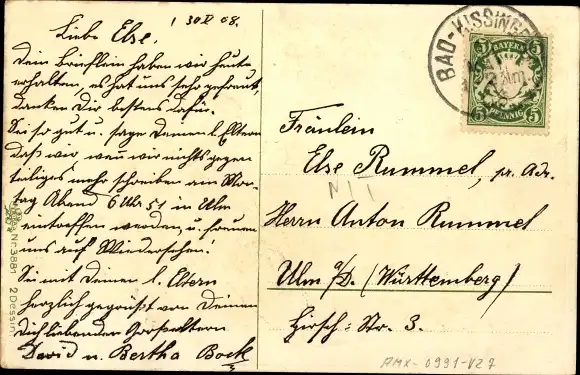 30 V 08.
Liebe Else.
Dein Brieflein haben wir heute
erhalten, es hat uns sehr gefreut,
danken Dir bestens dafür.
Sei so gut u. sage Deinen l. Eltern
daß wir, wenn wir nichts gegen
teiliges mehr schreiben am Mon-
tag Abend 6 Uhr 51 in Ulm
eintreffen werden, u. freuen
uns auf Wiedersehen!
Sei mit Deinen l. Eltern
herzlich gegrüßt von Deinen
Dich liebenden Großeltern
David u. Bertha Bock
Nr. 3881 2 Dessins
BAD-KISSINGEN
5 BAYERN 5
5 PFENNIG 5
Fräulein
Else Rummel, pr. Adr.
Herrn Anton Rummel
Ulm a/D. (Württemberg)
Hirsch-Str. 3.
AMX-0991-VZ7